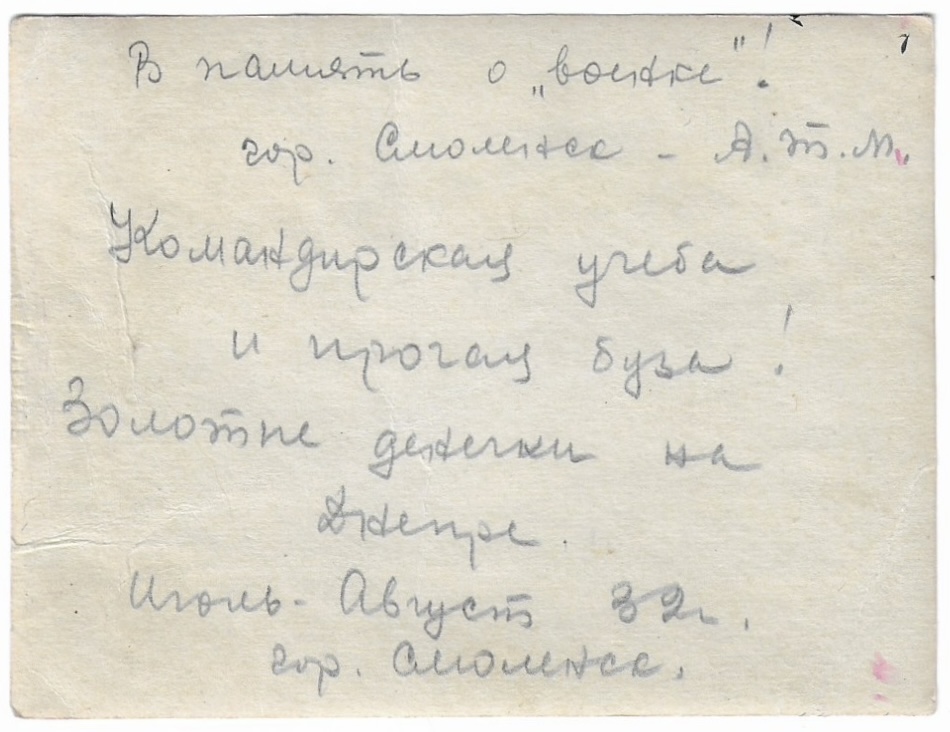 В память о „военке"!
гор. Смоленск - А.Т.М.
Командирская учеба
и прочая буза!
Золотые денечки на
Днепре.
Июль-Август 32г.
гор. Смоленск.